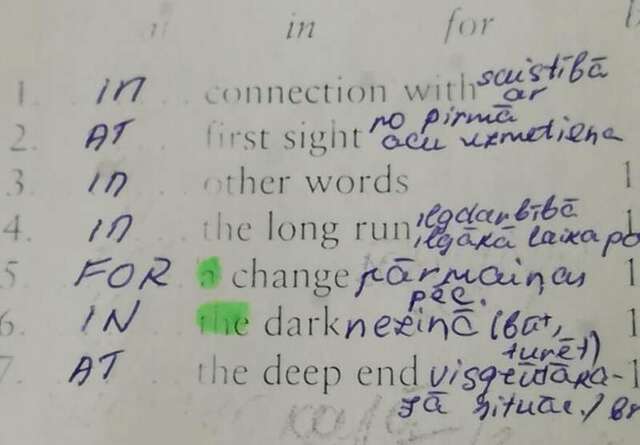 at in for
1. IN connection with saistībā ar
2. AT first sight no pirmā acu uzmetiena
3. IN other words 1
4. IN the long run, ilgdarbībā ilgākā laika po 1
5 FOR a change pārmaiņas pēc. 1
6. IN the dark nezinā (būt, turēt) 1
7. AT the deep end 1